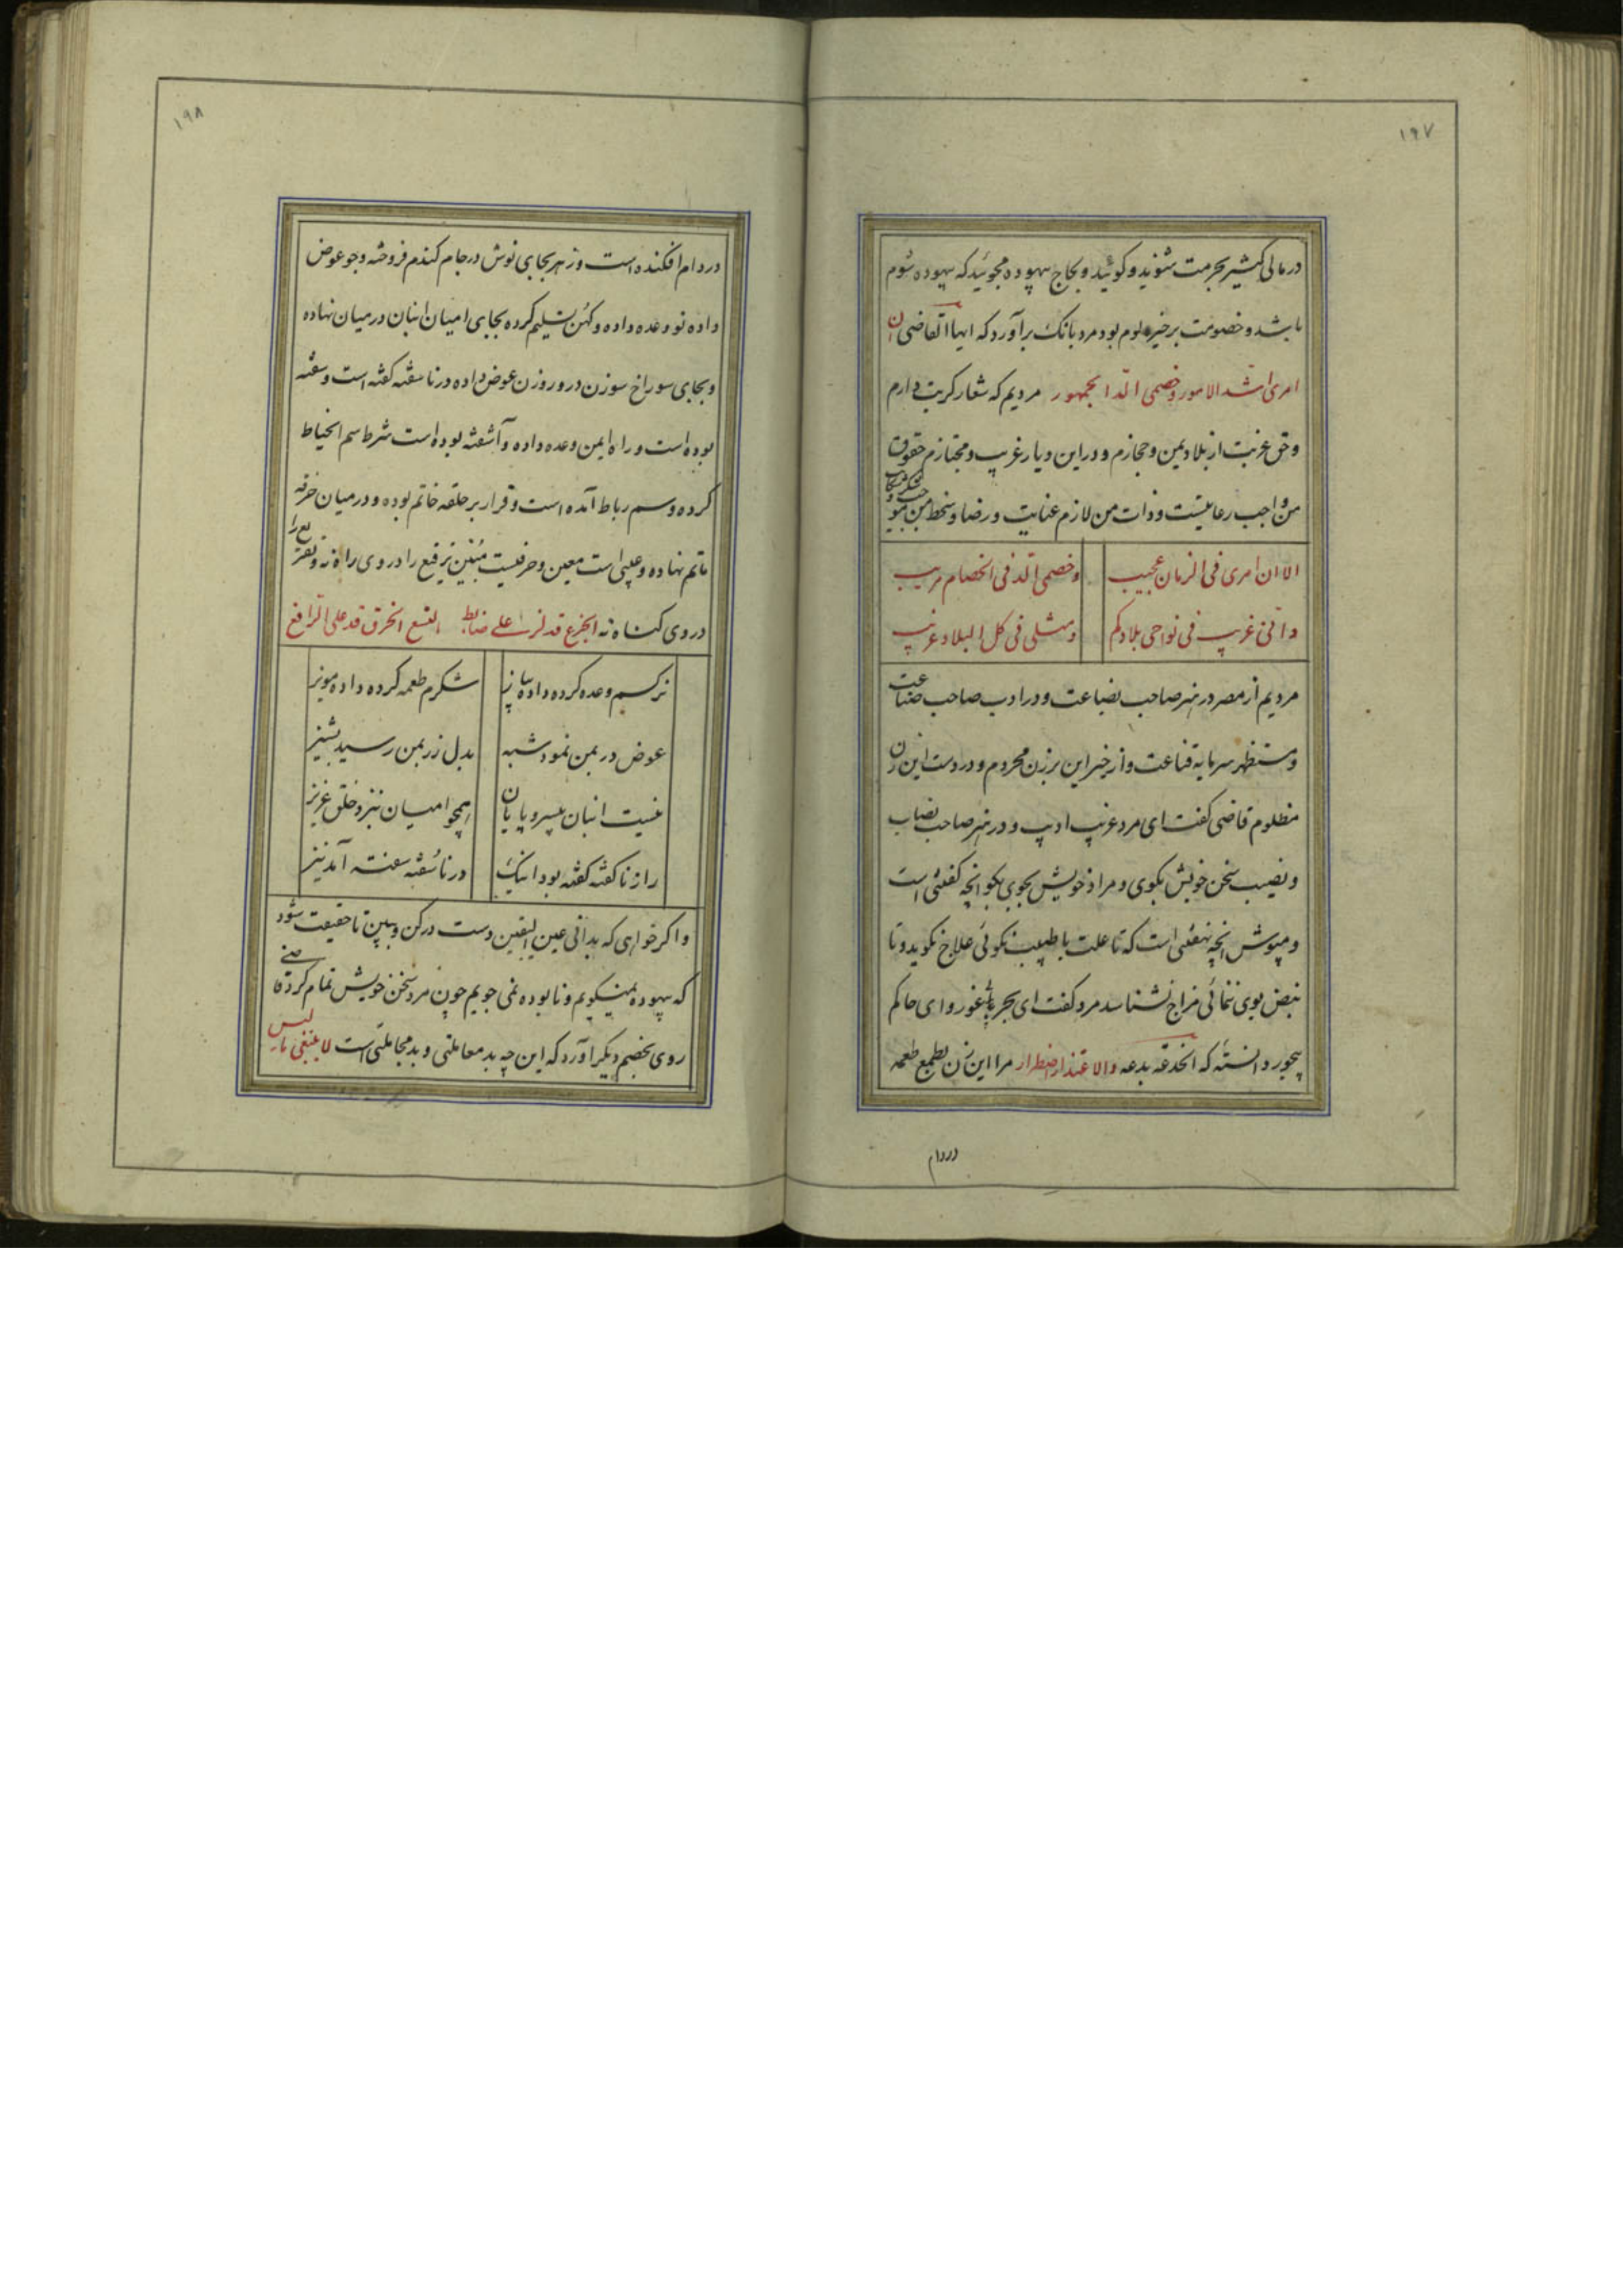 ۱۹۷
در مالی کثیر بحرمت شنوید و کوئید و لجاج بیهوده مجوئید که بیهوده شوم
باشد و خصومت بر خیره لوم بود مرد بانک برآورد که ایها القاضی ان
امری اشد الامور و خصمی الد الجمهور مردیم که شعار کربت دارم
و حق غربت از بلاد یمن و حجازم و در این دیار غریب و مجتازم حقوق
من واجب رعایتست و ذات من لازم عنایت و رضا و سخط من
الا ان امری فی الزمان عجیب وخصمی الد فی الخصام مریب
وانی غریب فی نواحی بلادکم ومثلی فی کل البلاد غریب
مردیم از مصر در هنر صاحب بضاعت و در ادب صاحب صناعت
و مستظهر سرمایه قناعت و از خیر این برزن محروم و در دست این زن
مظلوم قاضی کفت ای مرد غریب ادیب و در هنر صاحب نصاب
و نصیب سخن خویش بکوی و مراد خویش بجوی بکو انچه کفتنی است
و مپوش انچه نهفتنی است که تا علت با طبیب نکوئی علاج نکوید و تا
نبض بوی ننمائی مزاج نشناسد مرد کفت ای بحر غور و ای حاکم
بیجور دانسته که الخدعه بدعه والاعتذار اضطرار مرا این زن بطمع طعمه
در دام
۱۹۸
در دام افکنده است و زهر بجای نوش در جام کندم فروخته و جو عوض
داده نو وعده داده و کهن تسلیم کرده بجای امیان انبان در میان نهاده
و بجای سوراخ سوزن در و روزن عوض داده در ناسفته کفته است و سفته
بوده است و راه ایمن وعده داده و آشفته بوده است شرط سم الخیاط
کرده و سم رباط آمده است و قرار بر حلقه خاتم بوده و در میان خرقه
ماتم نهاده و عیبی است معین و حرفیست مبین ترقیع را در وی راه نه و تضریع را
در وی کناه نه الجزع قد علی ضابط اتسع الخرق قد علی الراقع
نرکسم وعده کرده داده پیاز شکرم طعمه کرده داده مویز
عوض در بمن نمود شبه بدل زر بمن رسید پشیز
نیست انبان بیسر و پایان همچو امیان بنزد خلق عزیز
راز ناکفته کفته بود اینک در ناسفته سفته آمد نیز
و اکر خواهی که بدانی عین الیقین دست در کن و ببین تا حقیقت شود
که بیهوده نمیکویم و نابوده نمی جویم چون مرد سخن خویش تمام کرد قاضی
روی بخصم دیکر آورد که این چه بد معاملتی و بد مجاملتی است لا ینبغی لیس